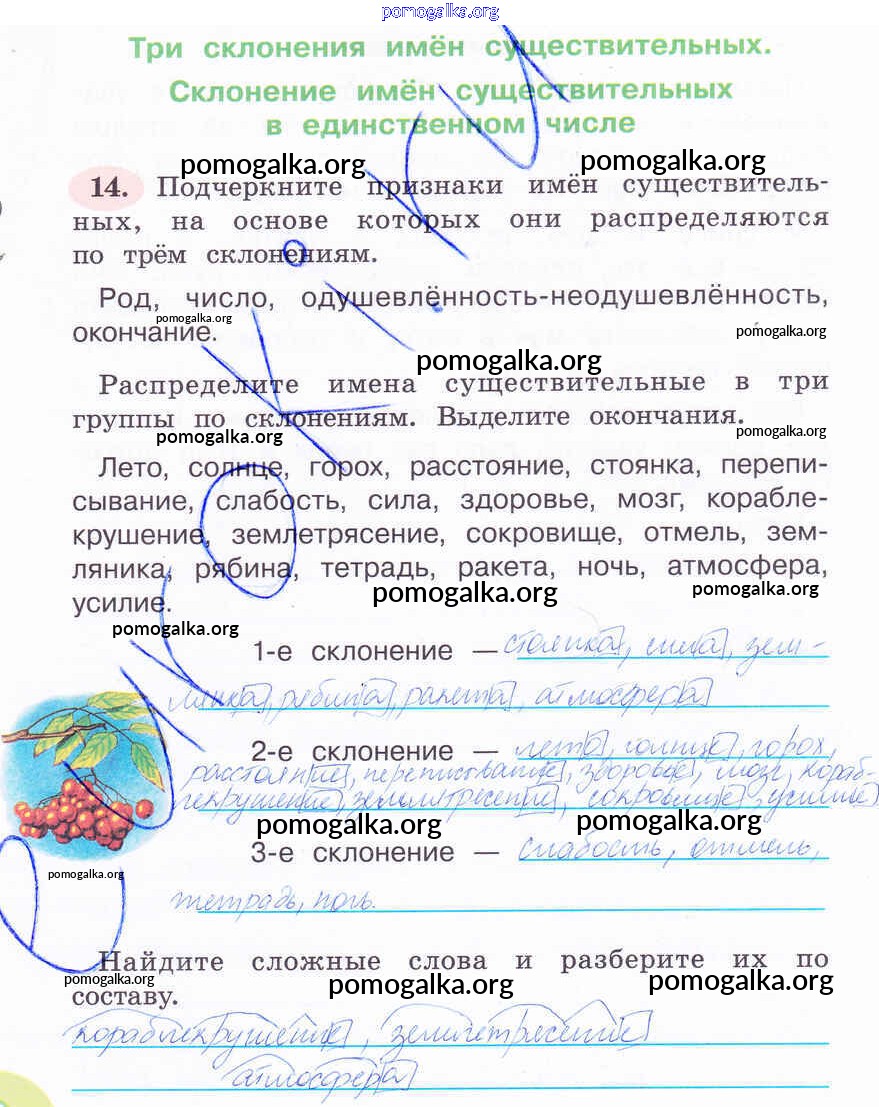 pomogalka.org
Три склонения имён существительных.
Склонение имён существительных
в единственном числе
pomogalka.org pomogalka.org
14. Подчеркните признаки имён существитель-
ных, на основе которых они распределяются
по трём склонениям.
Род, число, одушевлённость-неодушевлённость,
pomogalka.org
окончание. pomogalka.org
pomogalka.org
Распределите имена существительные в три
группы по склонениям. Выделите окончания.
pomogalka.org pomogalka.org
Лето, солнце, горох, расстояние, стоянка, перепи-
сывание, слабость, сила, здоровье, мозг, корабле-
крушение, землетрясение, сокровище, отмель, зем-
ляника, рябина, тетрадь, ракета, ночь, атмосфера,
усилие. pomogalka.org pomogalka.org
pomogalka.org
1-е склонение — стоянка, сила, зем-
ляника, рябина, ракета, атмосфера
2-е склонение — лето, солнце, горох,
расстояние, переписывание, здоровье, мозг, кораб-
лекрушение, землетрясение, сокровище, усилие
pomogalka.org pomogalka.org
3-е склонение — слабость, отмель,
pomogalka.org
тетрадь, ночь.
Найдите сложные слова и разберите их по
pomogalka.org pomogalka.org pomogalka.org
составу.
кораблекрушение, землетрясение
атмосфера